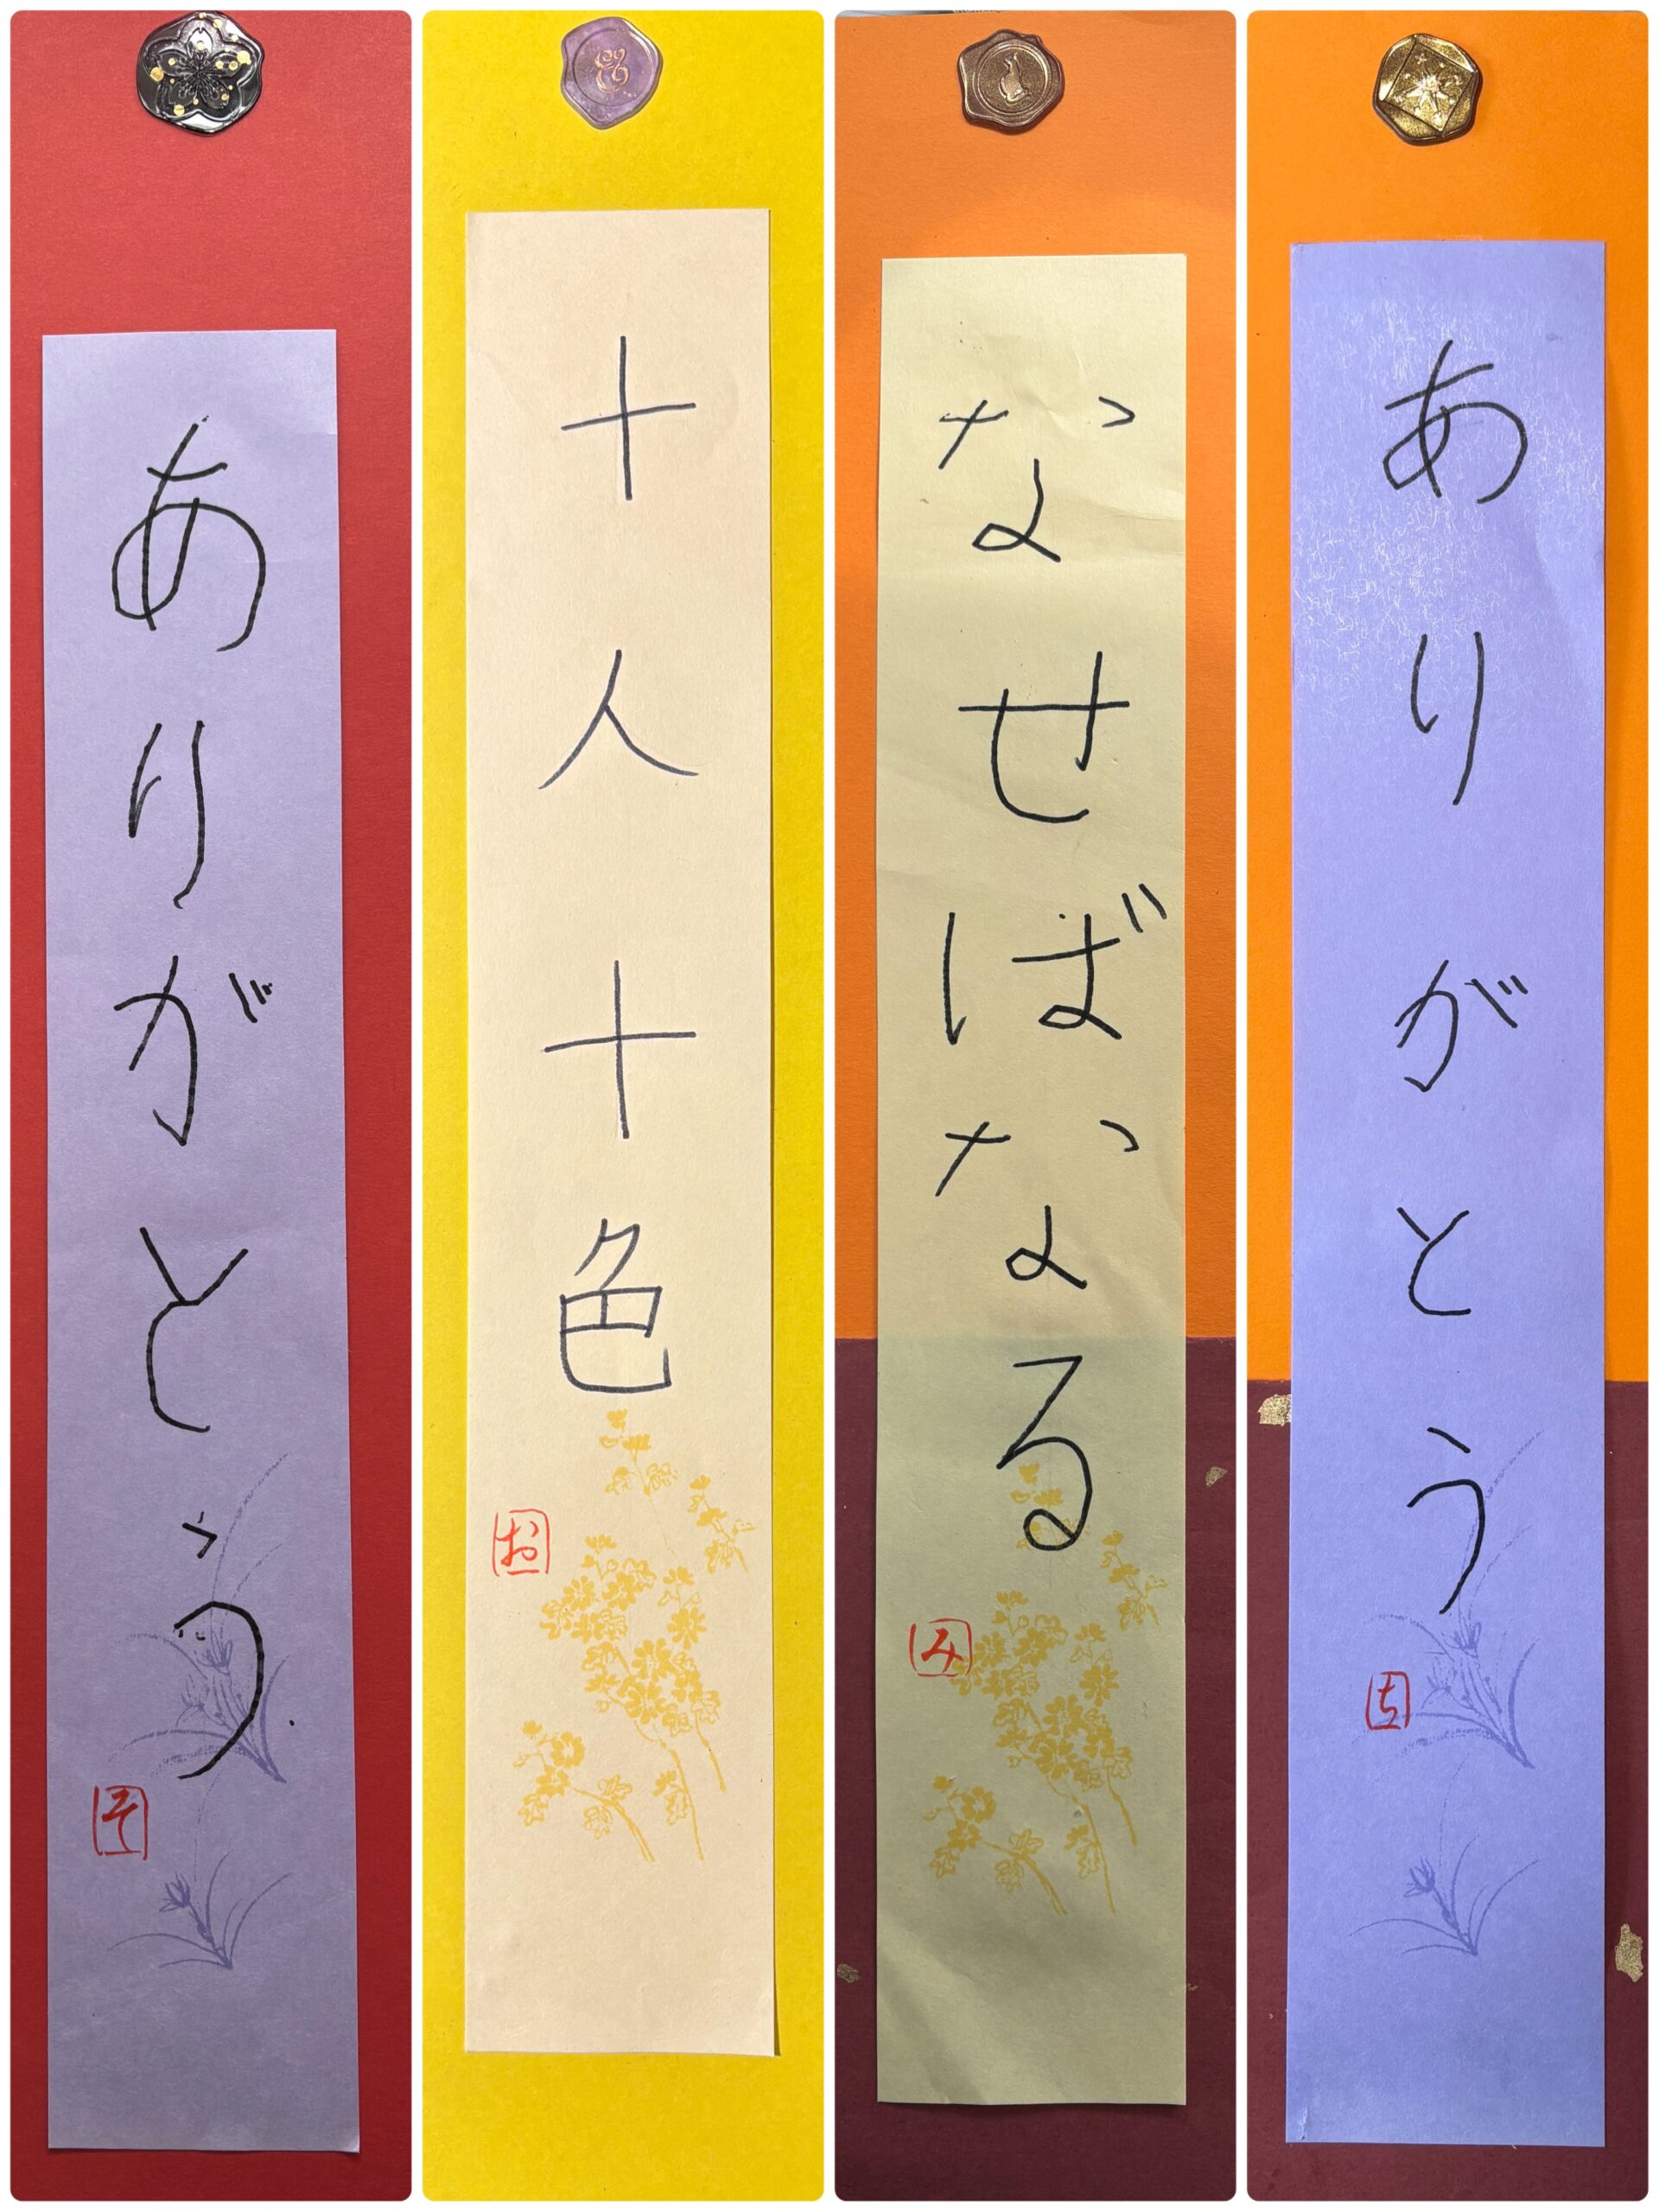 ありがとう
そ
十人十色
お
なせばなる
み
ありがとう
ち